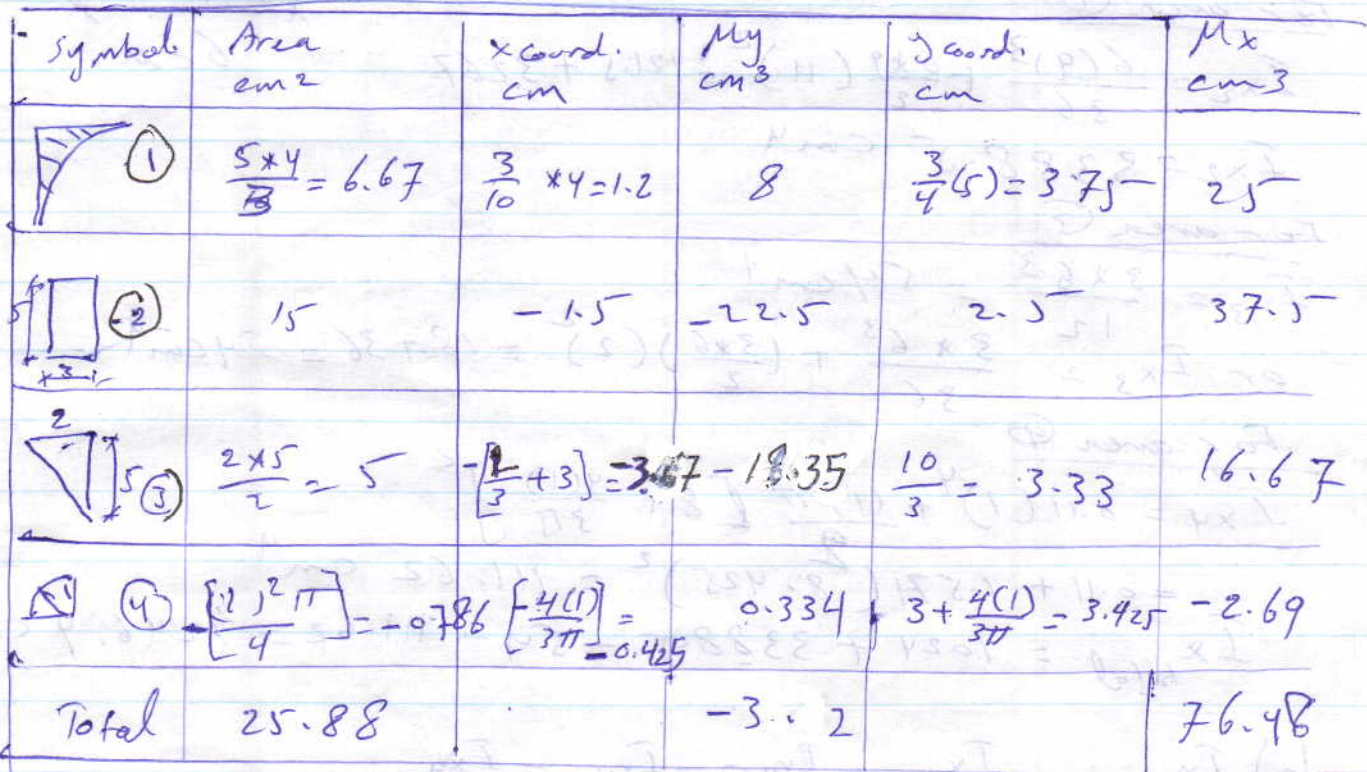 Symbol Area cm2 x coord. cm My cm3 y coord. cm Mx cm3
1 5*4/3 = 6.67 3/10 *4=1.2 8 3/4(5) = 3.75 25
5 3 2 15 -1.5 -22.5 2.5 37.5
2 5 3 2*5/2 = 5 -[2/3+3]=-3.67 -18.35 10/3 = 3.33 16.67
4 -[(1)²π/4] = -0.786 [-4(1)/3π] = -0.425 0.334 3+4(1)/3π = 3.425 -2.69
Total 25.88 76.48